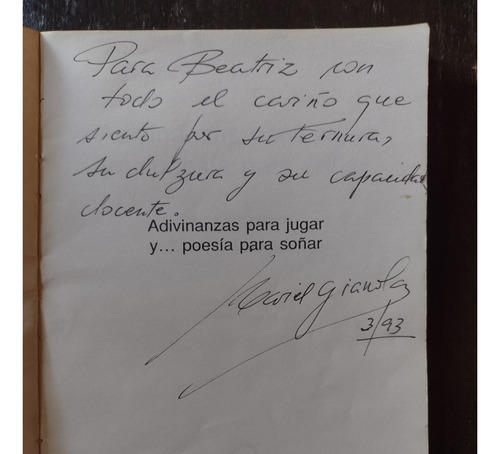 Para Beatriz con
todo el cariño que
siento por su ternura,
su dulzura y su capacidad
docente.
Adivinanzas para jugar
y... poesía para soñar
Mariel Gianolas
3/93